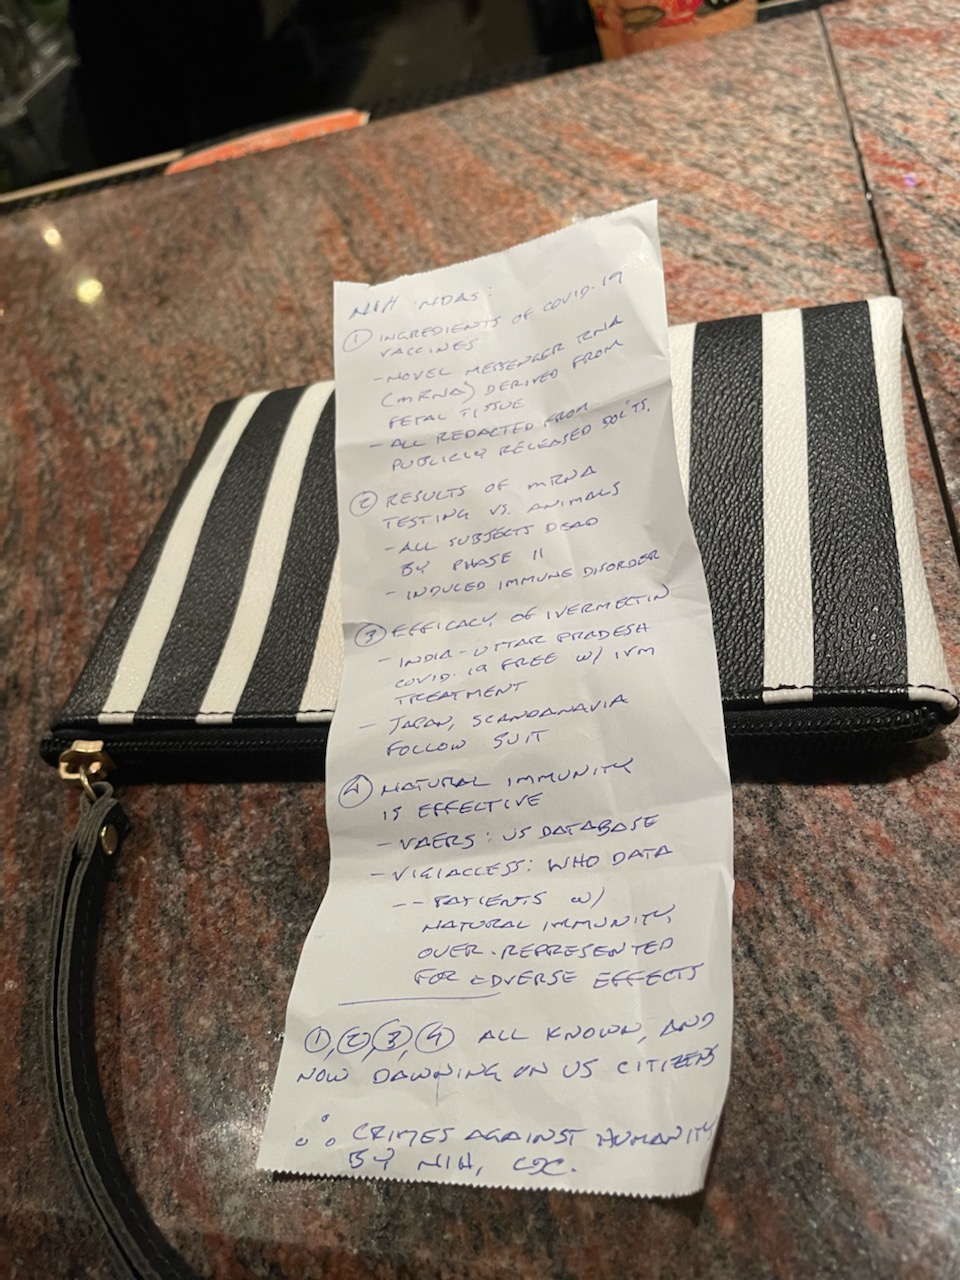 NIH NDAS:
① INGREDIENTS OF COVID-19
VACCINES
- NOVEL MESSENGER RNA
(mRNA) DERIVED FROM
FETAL TISSUE
- ALL REDACTED FROM
PUBLICLY RELEASED DOC'TS.
② RESULTS OF mRNA
TESTING VS. ANIMALS
- ALL SUBJECTS DEAD
BY PHASE II
- INDUCED IMMUNE DISORDER
③ EFFICACY OF IVERMECTIN
- INDIA - UTTAR PRADESH
COVID-19 FREE W/ IVM
TREATMENT
- JAPAN, SCANDANAVIA
FOLLOW SUIT
④ NATURAL IMMUNITY
IS EFFECTIVE
- VAERS: US DATABASE
- VIGIACCESS: WHO DATA
-- PATIENTS W/
NATURAL IMMUNITY
OVER-REPRESENTED
FOR ADVERSE EFFECTS
①,②,③,④ ALL KNOWN, AND
NOW DAWNING ON US CITIZENS
∴ CRIMES AGAINST HUMANITY
BY NIH, CDC.